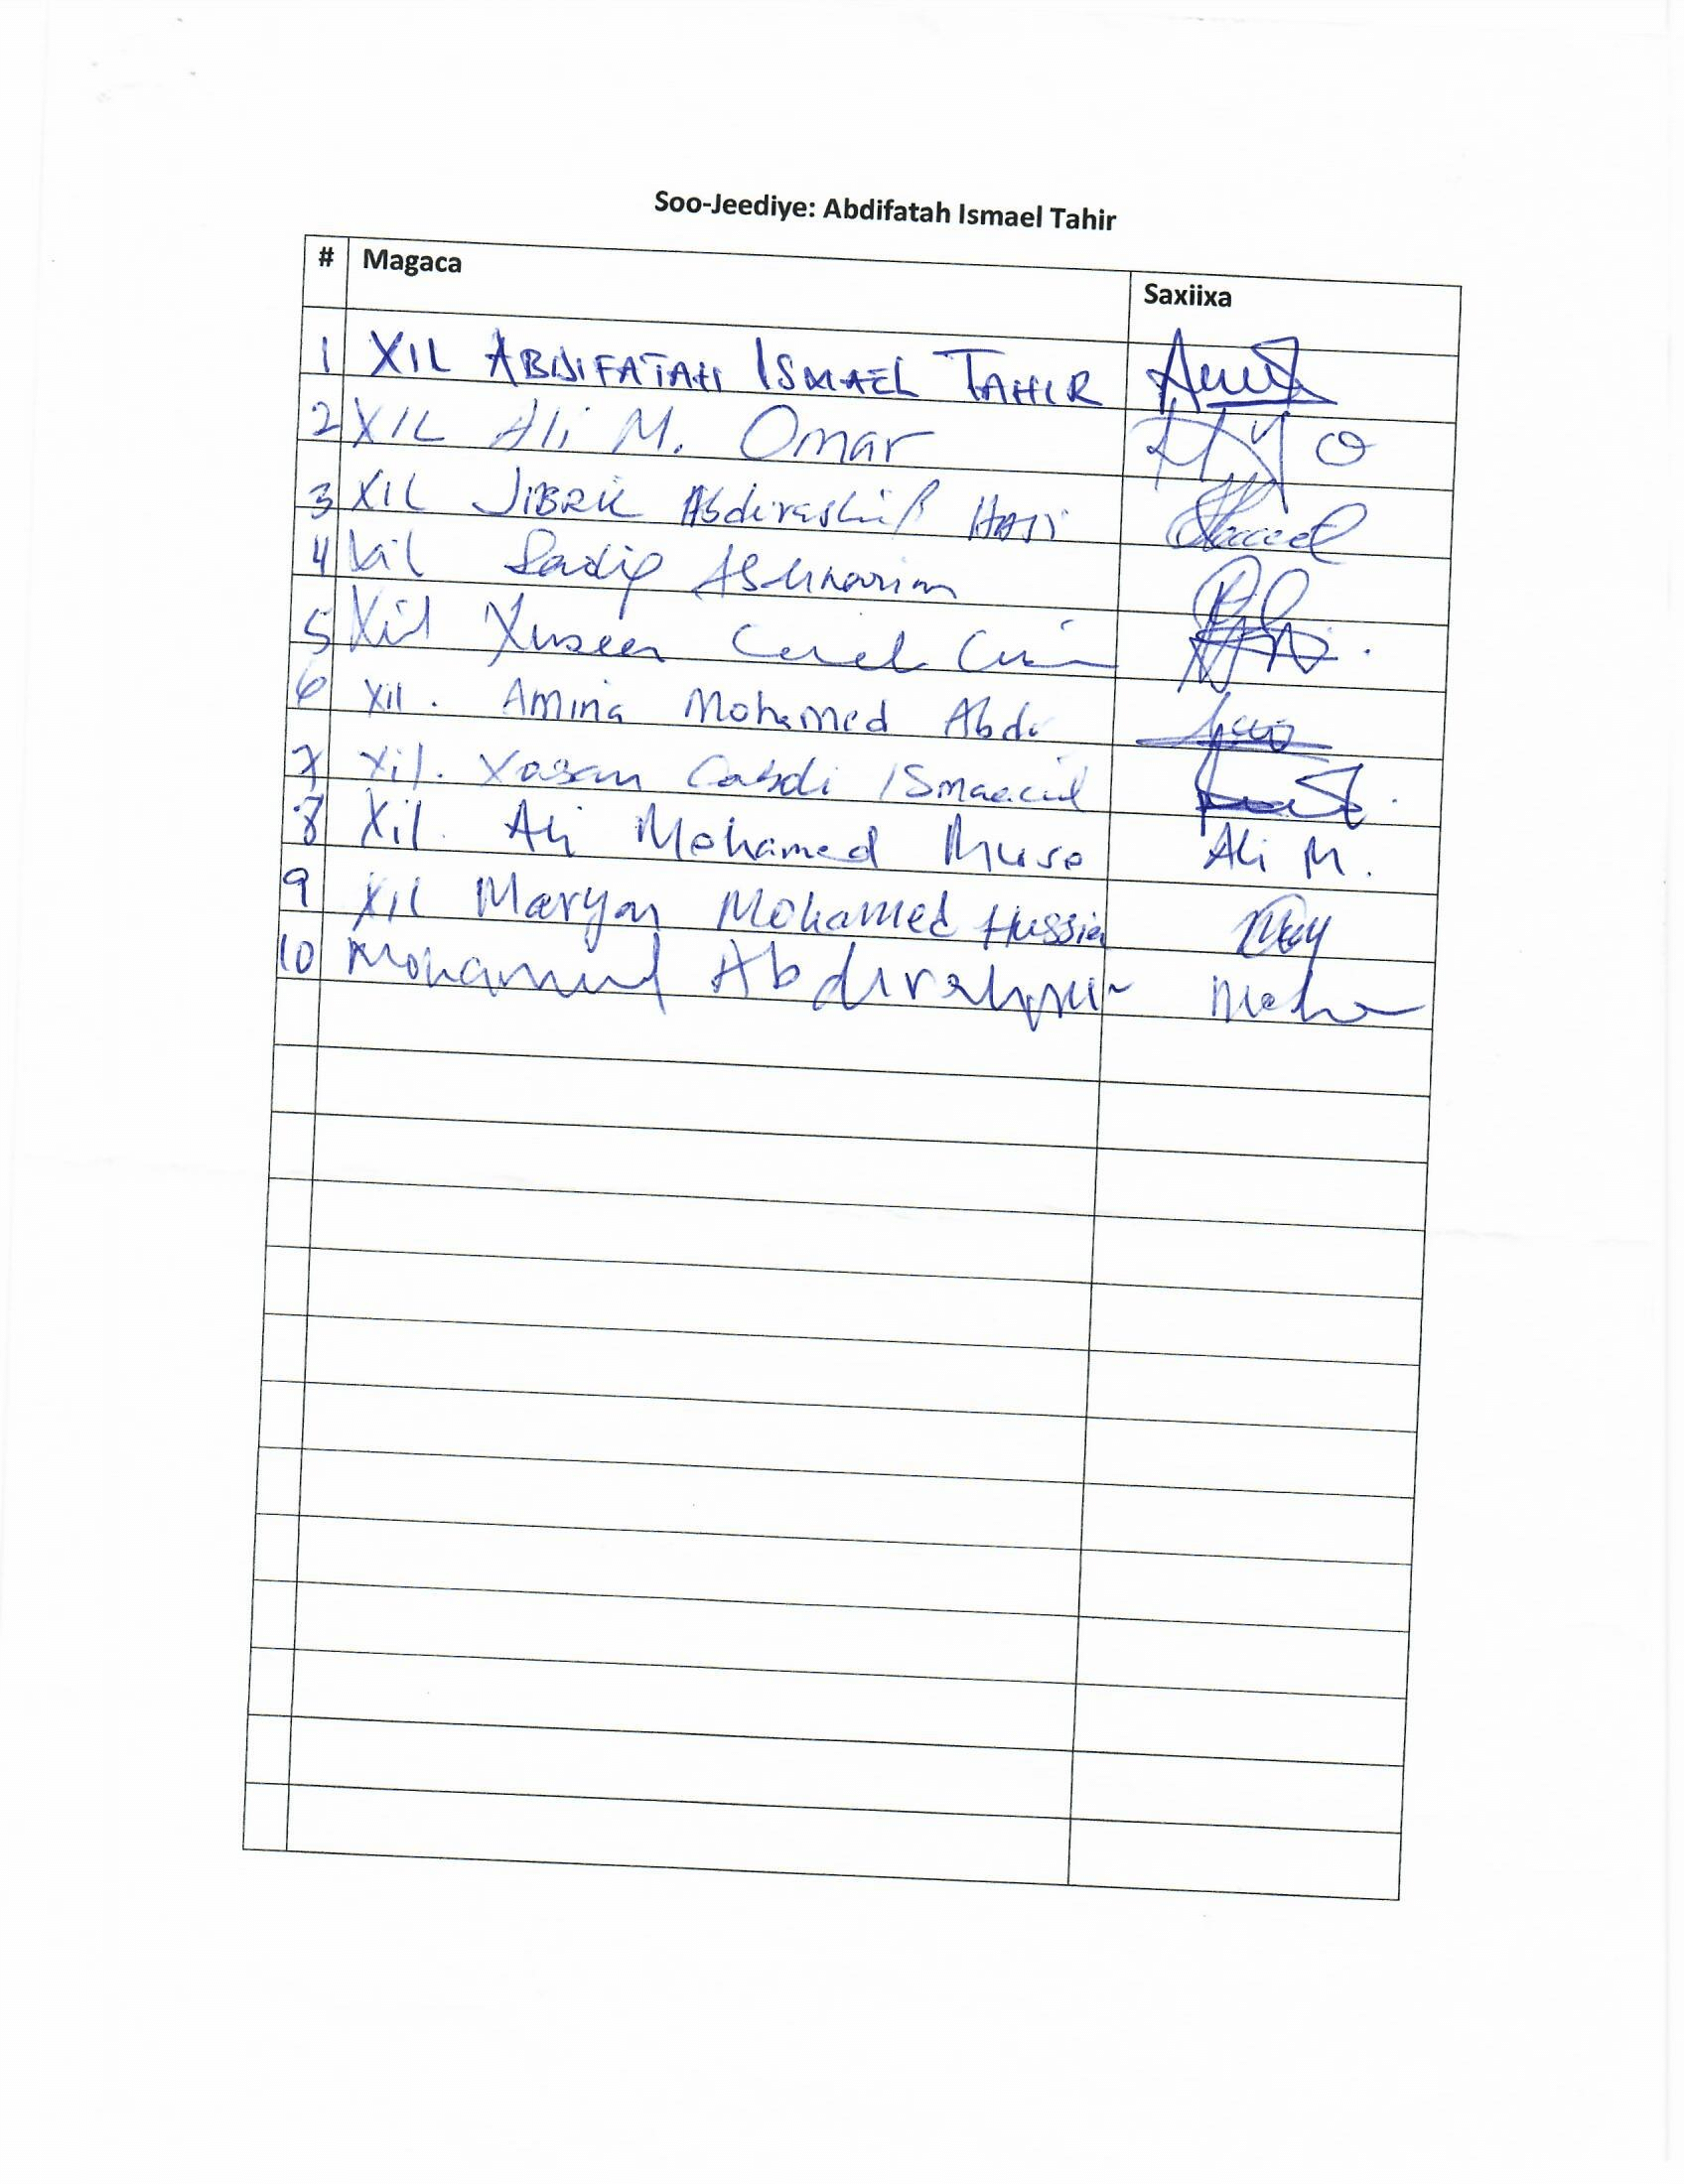 Soo-Jeediye: Abdifatah Ismael Tahir
# Magaca Saxiixa
1 XIL ABDIFATAH ISMAEL TAHIR
2 XIL Ali M. Omar
3 XIL JIBRIL Abdirashid HAJI
4 Xil Sadiq
5 Xil Xuseen
6 Xil. Amina Mohamed Abdi
7 Xil. Xasan Cabdi Ismaaciil
8 Xil. Ali Mohamed Muse Ali M.
9 XIL Maryan Mohamed Hussien
10 Mohamud Abdirahman